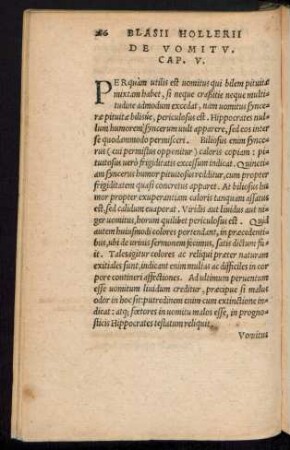 86 BLASII HOLLERII
DE VOMITV.
CAP. V.
PERquàm utilis est uomitus qui bilem pituitæ
mixtam habet, si neque crassitie neque multi-
tudine admodum excedat, nam uomitus syncere
pituitæ bilisúe, periculosus est. Hippocrates nul
lum humorem syncerum uult apparere, sed eos inter
se quodammodo permisceri. Biliosus enim syncerus
(cui permistus opponitur) caloris copiam: pi
tuitosus uerò frigiditatis excessum indicat. Quinetiam
syncerus humor pituitosus redditur, cum propter
frigiditatem quasi concretus apparet. At biliosus hu
mor propter exuperantiam caloris tanquam assatus
est, sed calidum exuperat. Viridis aut liuidus aut ni-
ger uomitus, horum quilibet periculosus est. Quid
autem huiusmodi colores portendant, in præcedenti-
bus, ubi de urinis sermonem fecimus, satis dictum fu-
it. Tales igitur colores ac reliqui præter naturam
exitiales sunt, indicant enim multas ac difficiles in cor
pore contineri affectiones. Adultimum peruentum
esse uomitum liuidum creditur, præcipue si malus
odor in hoc sit: putredinem enim cum extinctione in-
dicat: atq; fœtores in uomitu malos esse, in progno-
sticis Hippocrates testatum reliquit.
Vomitus